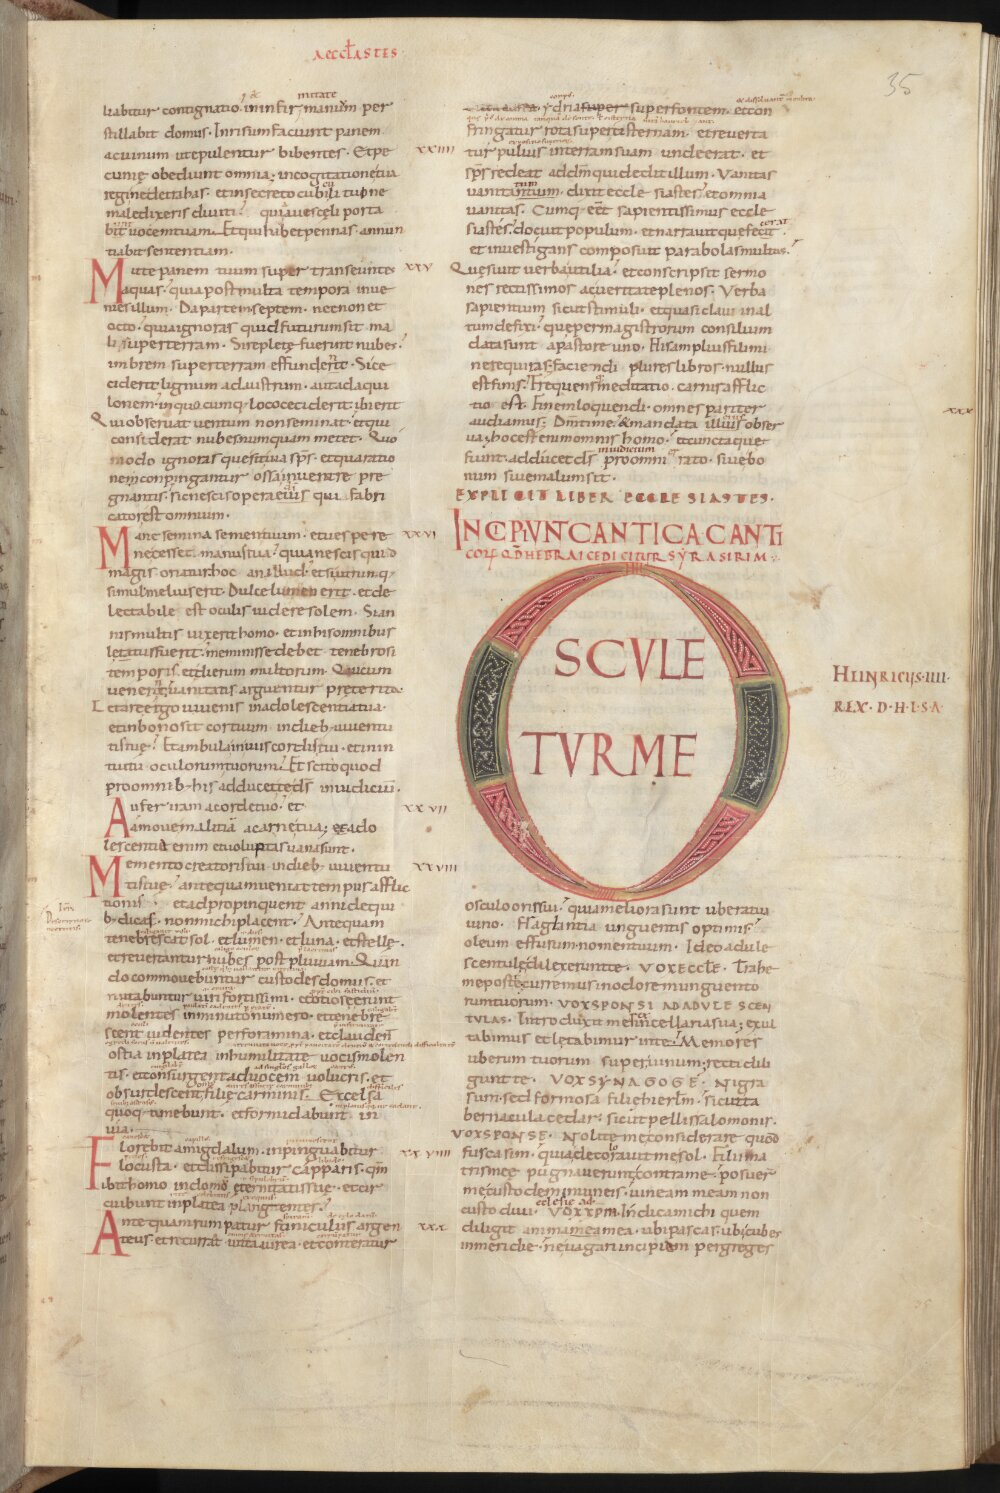 AECCLASTES
35
habitur contignatio. in infirmitate manuum per
stillabit domus. In risum faciunt panem
ac uinum ut epulentur bibentes. Et pe XXIIII
cuniae obediunt omnia; in cogitatione tua
regi ne detrahas. et in secreto cubili tui ne
maledixeris diuiti. quia aues cęli porta
bunt uocem tuam. Et qui habet pennas annun
tiabit sententiam.
Mitte panem tuum super transeuntes XXV
aquas. quia post multa tempora inue
nies illum. Da partem septem. necnon et
octo. quia ignoras quid futurum sit ma
li super terram. Si repletę fuerint nubes.
imbrem super terram effundent. Si ce
ciderit lignum ad austrum. aut ad aqui
lonem. in quocumq; loco ceciderit. ibi erit
Qui obseruat uentum non seminat. et qui
considerat nubes numquam metet. Quo
modo ignoras que sit uia sps. et qua ratio
ne conpingantur ossa in uentre pre
gnantis. sic nescis opera eius qui fabri
cator est omnium.
Mane semina semen tuum. et uespere XXVI
ne cesset manus tua. quia nescis quid
magis oriatur hoc an illud. et si utrunq;
simul melius erit. Dulce lumen erit. et de
lectabile est oculis uidere solem. Si an
nis multis uixerit homo. et in his omnibus
lętatus fuerit. meminisse debet tenebrosi
temporis. et dierum multorum. Qui cum
uenerit uanitatis arguentur preterita.
Lętare ergo iuuenis in adolescentia tua.
et in bono sit cor tuum in dieb. iuuentu
tis tuę. Et ambula in uiis cordis tui. et in in
tuitu oculorum tuorum. Et scito quod
pro omnib. his adducet te ds in iudicium.
Aufer iram a corde tuo. et XXVII
amoue malitiā a carne tua; et ado
lescentia enim et uoluptas uana sunt.
Memento creatoris tui in dieb. iuuentu XXVIII
tis tuę. antequam ueniat tempus afflic
tionis. et ad propinquent anni de qui
b. dicas. non mihi placent. Antequam
tenebrescat sol. et lumen. et luna. et stellę.
et reuertantur nubes post pluuiam. Quan
do commouebuntur custodes domus. et
nutabuntur uiri fortissimi. et otiosę erunt
molentes in minuto numero. et tenebre
scent uidentes per foramina. et claudent
ostia in platea in humilitate uocis molen
tis. et consurgent ad uocem uolucris. et
obsurdescent filię carminis. Excelsa
quoq; timebunt. et formidabunt in
uia.
Florebit amigdalum. inpinguabitur XXVIIII
locusta. et dissipabitur capparis. qm
ibit homo in domū eternitatis suę. et cir
cuibunt in platea plangentes.
Antequam rumpatur funiculus argen XXX
teus. et recurrat uitta aurea. et conteratur
ydria super fontem. et con
fringatur rota super cisternam. et reuerta
tur puluis in terram suam unde erat. et
sps redeat ad dm qui dedit illum. Vanitas
uanitantium dixit ecclesiastes. et omnia
uanitas. Cumq; eēt sapientissimus eccle
siastes. docuit populum. et narrauit que fecerat.
et inuestigans composuit parabolas multas.
Quesiuit uerba utilia. et conscripsit sermo
nes rectissimos ac ueritate plenos. Verba
sapientium sicut stimuli. et quasi claui in al
tum defixi. que per magistrorum consilium
data sunt a pastore uno. His amplius fili mi
ne requiras. faciendi plures libros nullus
est finis. Frequensq; meditatio. carnis afflic
tio est. Finem loquendi. omnes pariter XXX
audiamus. Dm time. & mandata eius obser
ua. hoc est enim omnis homo. et cuncta que
fiunt. adducet ds in iudicium pro omni errato. siue bo
num siue malum sit.
EXPLICIT LIBER ECCLESIASTES.
INCIPIVNT CANTICA CANTI
CORŪ QD HEBRAICE DICITUR SYRASIRIM
OSCVLE
TVR ME
HEINRICYS IIII
REX D H I S A
osculo oris sui. quia meliora sunt ubera tua
uino. Flaglantia unguentis optimis.
oleum effusum nomen tuum. Ideo adule
scentulę dilexerunt te. VOX ECCLE. Trahe
me post te curremus in odorem unguento
rum tuorum. VOX SPONSI AD ADVLESCEN
TVLAS. Introduxit me rex in cellaria sua; exul
tabimus et lętabimur in te. Memores
uberum tuorum super uinum; recti dili
gunt te. VOX SYNAGOGE. Nigra
sum. sed formosa filię hierlm. sicut ta
bernacula cedar. sicut pellis salomonis.
VOX SPONSE. Nolite me considerare quod
fusca sim. quia decolorauit me sol. Filii ma
tris meę pugnauerunt contra me. posuer
me custodem in uineis. uineam meam non
custodiui. VOX ecclesię ad XPM. Indica mihi quem
diligit anima mea. ubi pascas. ubi cubes
in meridie. ne uagari incipiam per greges